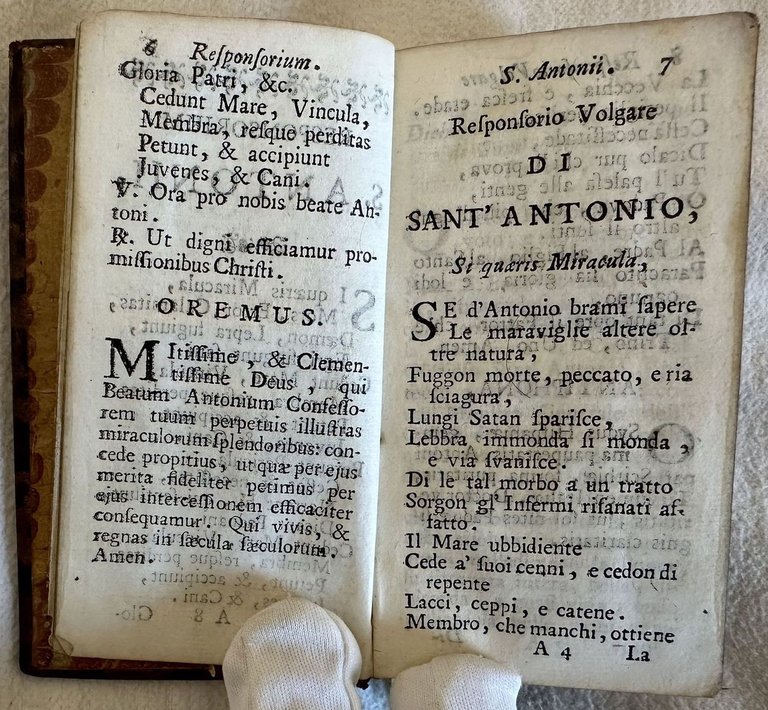 6 Reſponſorium.
Gloria Patri, &c.
Cedunt Mare, Vincula,
Membra, reſque perditas
Petunt, & accipiunt
Juvenes, & Cani.
℣. Ora pro nobis beate An-
toni.
℟. Ut digni efficiamur pro-
miſſionibus Chriſti.
OREMUS.
MItiſſime, & Clemen-
tiſſime Deus, qui
Beatum Antonium Confeſſo-
rem tuum perpetuis illuſtras
miraculorum ſplendoribus: con-
cede propitius, ut quæ per ejus
merita fideliter petimus per
ejus interceſſionem efficaciter
conſequamur. Qui vivis, &
regnas in ſæcula ſæculorum.
Amen.
Glo-
S. Antonii. 7
Reſponſorio Volgare
DI
SANT' ANTONIO,
Si quæris Miracula,
SE d'Antonio brami ſapere
Le maraviglie altere ol-
tre natura,
Fuggon morte, peccato, e ria
ſciagura,
Lungi Satan ſpariſce,
Lebbra immonda ſi monda,
e via ſvaniſce.
Di le tal morbo a un tratto
Sorgon gl'Infermi riſanati af-
fatto.
Il Mare ubbidiente
Cede a' ſuoi cenni, e cedon di
repente
Lacci, ceppi, e catene.
Membro, che manchi, ottiene
A 4 La